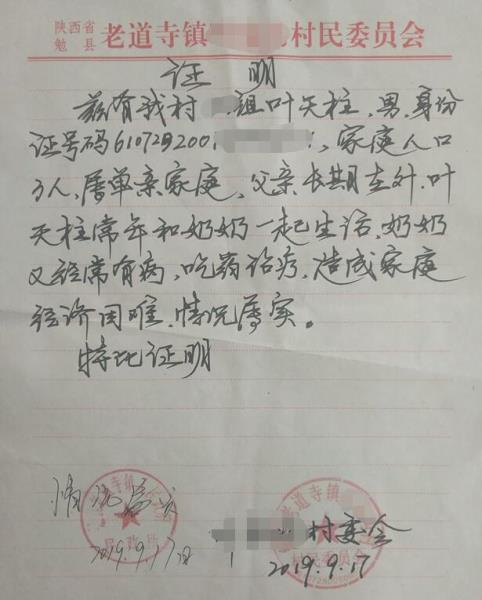 陕西省
勉县 老道寺镇 村民委员会
证 明
兹有我村 组叶天柱，男，身份
证号码 ，家庭人口
3人，属单亲家庭，父亲长期在外，叶
天柱常年和奶奶一起生活，奶奶
又经常有病，吃药治疗，造成家庭
经济困难，情况属实。
特此证明
情况属实
2019.9.17日
民政
老道寺镇
村委会
村民委员会
2019.9.17